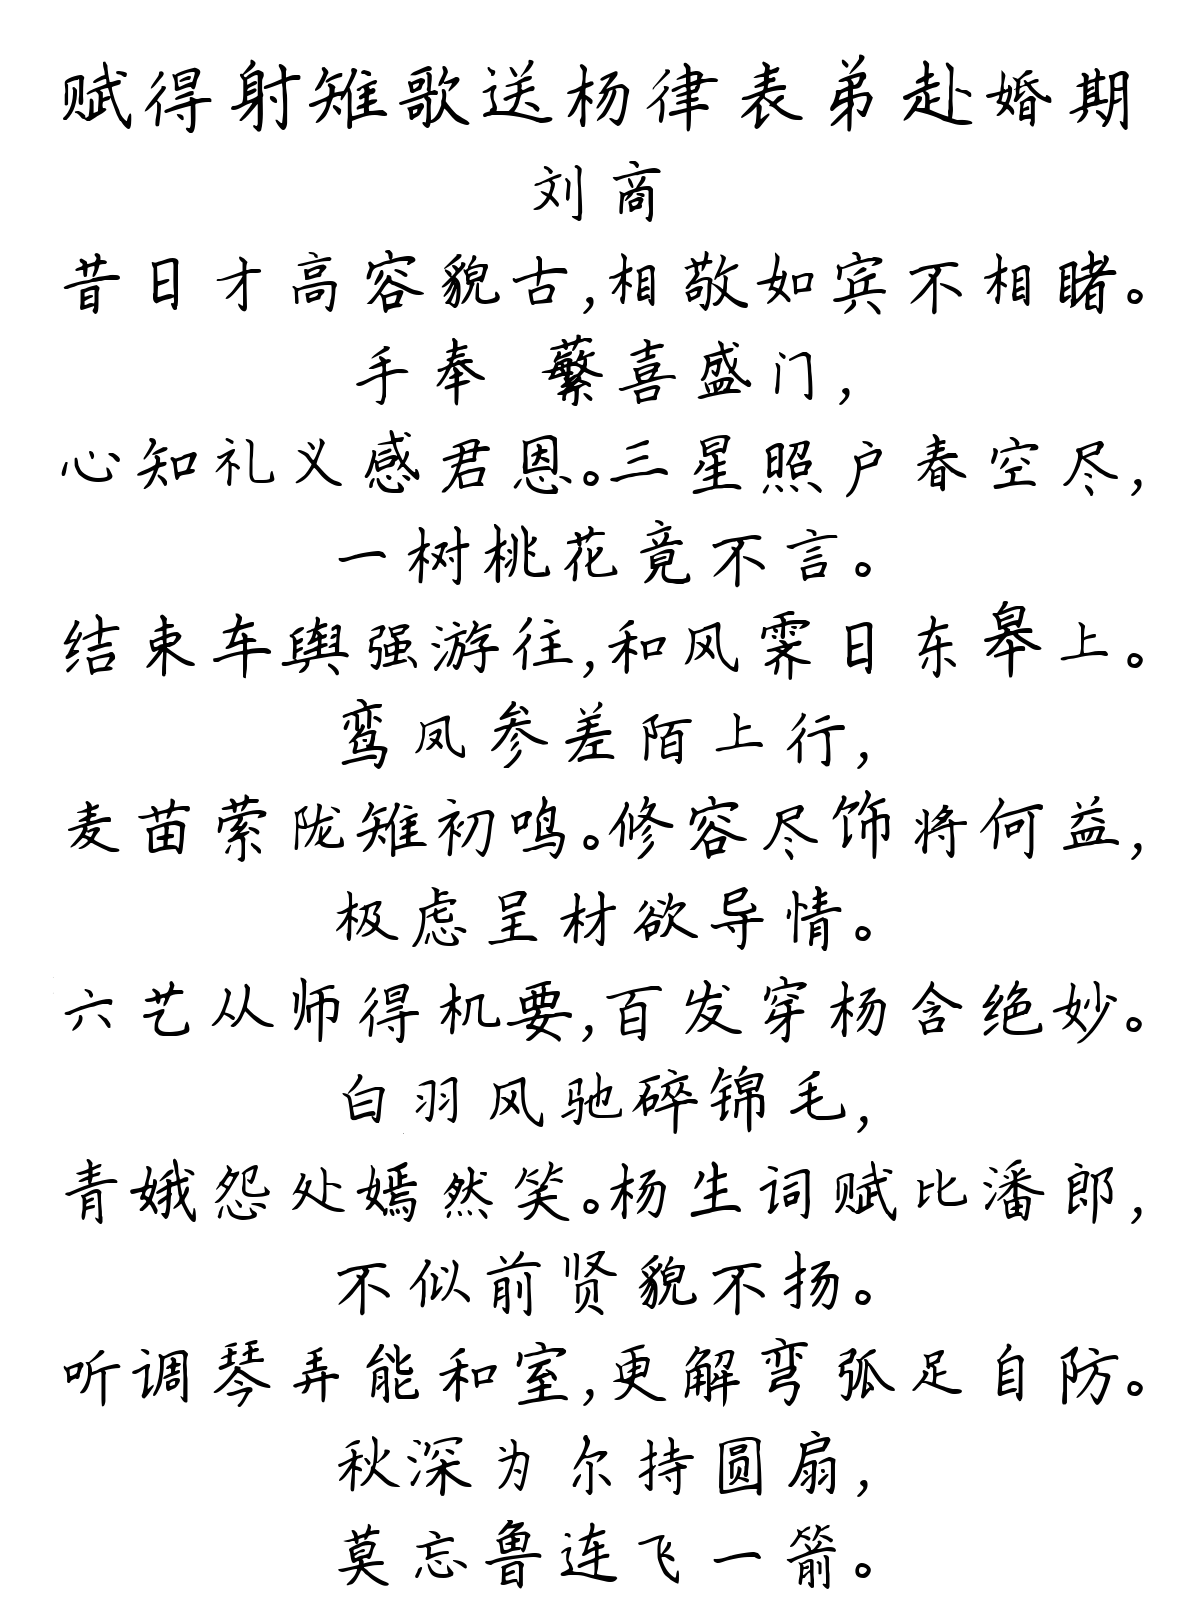 赋得射雉歌送杨律表弟赴婚期
刘商
昔日才高容貌古,相敬如宾不相睹。
手奉 蘩喜盛门,
心知礼义感君恩。三星照户春空尽,
一树桃花竟不言。
结束车舆强游往,和风霁日东皋上。
鸾凤参差陌上行,
麦苗萦陇雉初鸣。修容尽饰将何益,
极虑呈材欲导情。
六艺从师得机要,百发穿杨含绝妙。
白羽风驰碎锦毛,
青娥怨处嫣然笑。杨生词赋比潘郎,
不似前贤貌不扬。
听调琴弄能和室,更解弯弧足自防。
秋深为尔持圆扇,
莫忘鲁连飞一箭。